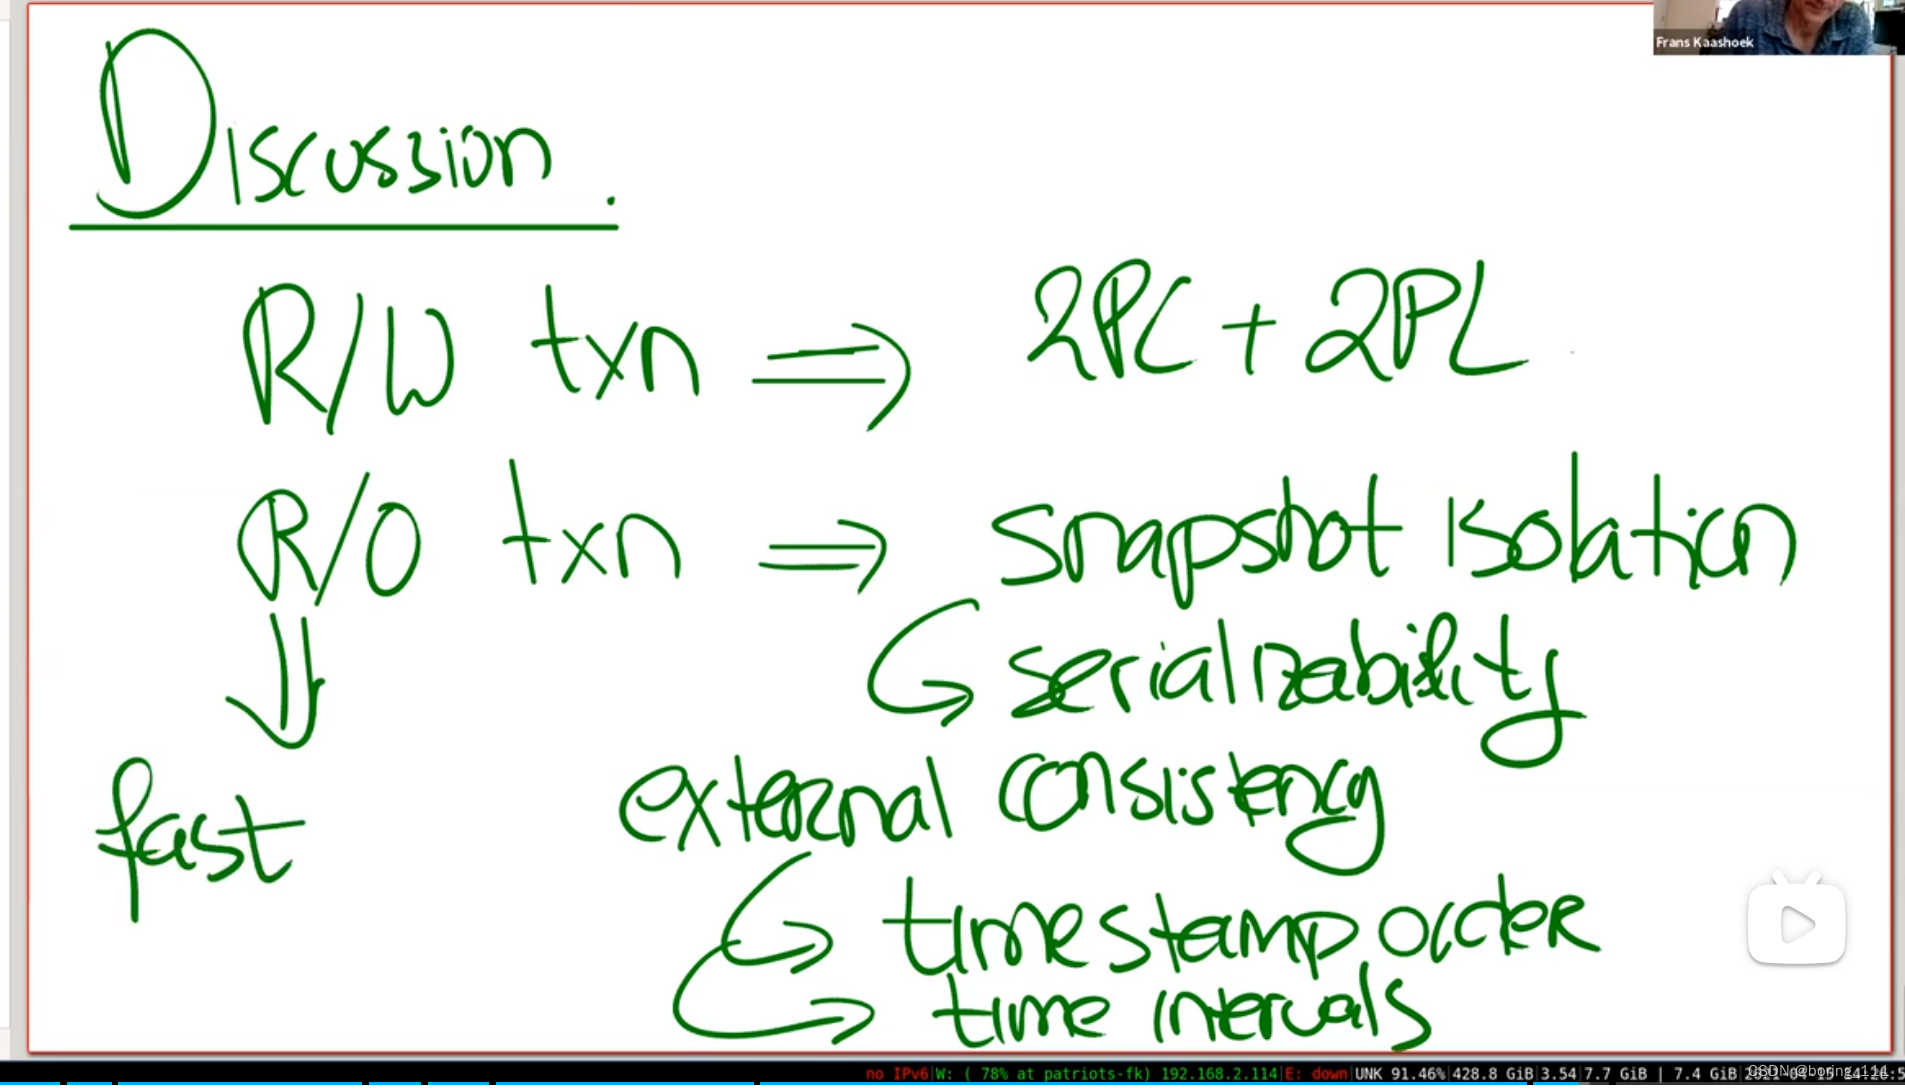 Frans Kaashoek
Discussion.
R/W txn ⇒ 2PC + 2PL
R/O txn ⇒ snapshot isolation
↳ serializability
⇓
fast
external consistency
↳ timestamp order
↳ time intervals
no IPv6|W: ( 78% at patriots-fk) 192.168.2.114|E: down|UNK 91.46%|428.8 GiB|3.54|7.7 GiB | 7.4 GiB
CSDN @boring_114